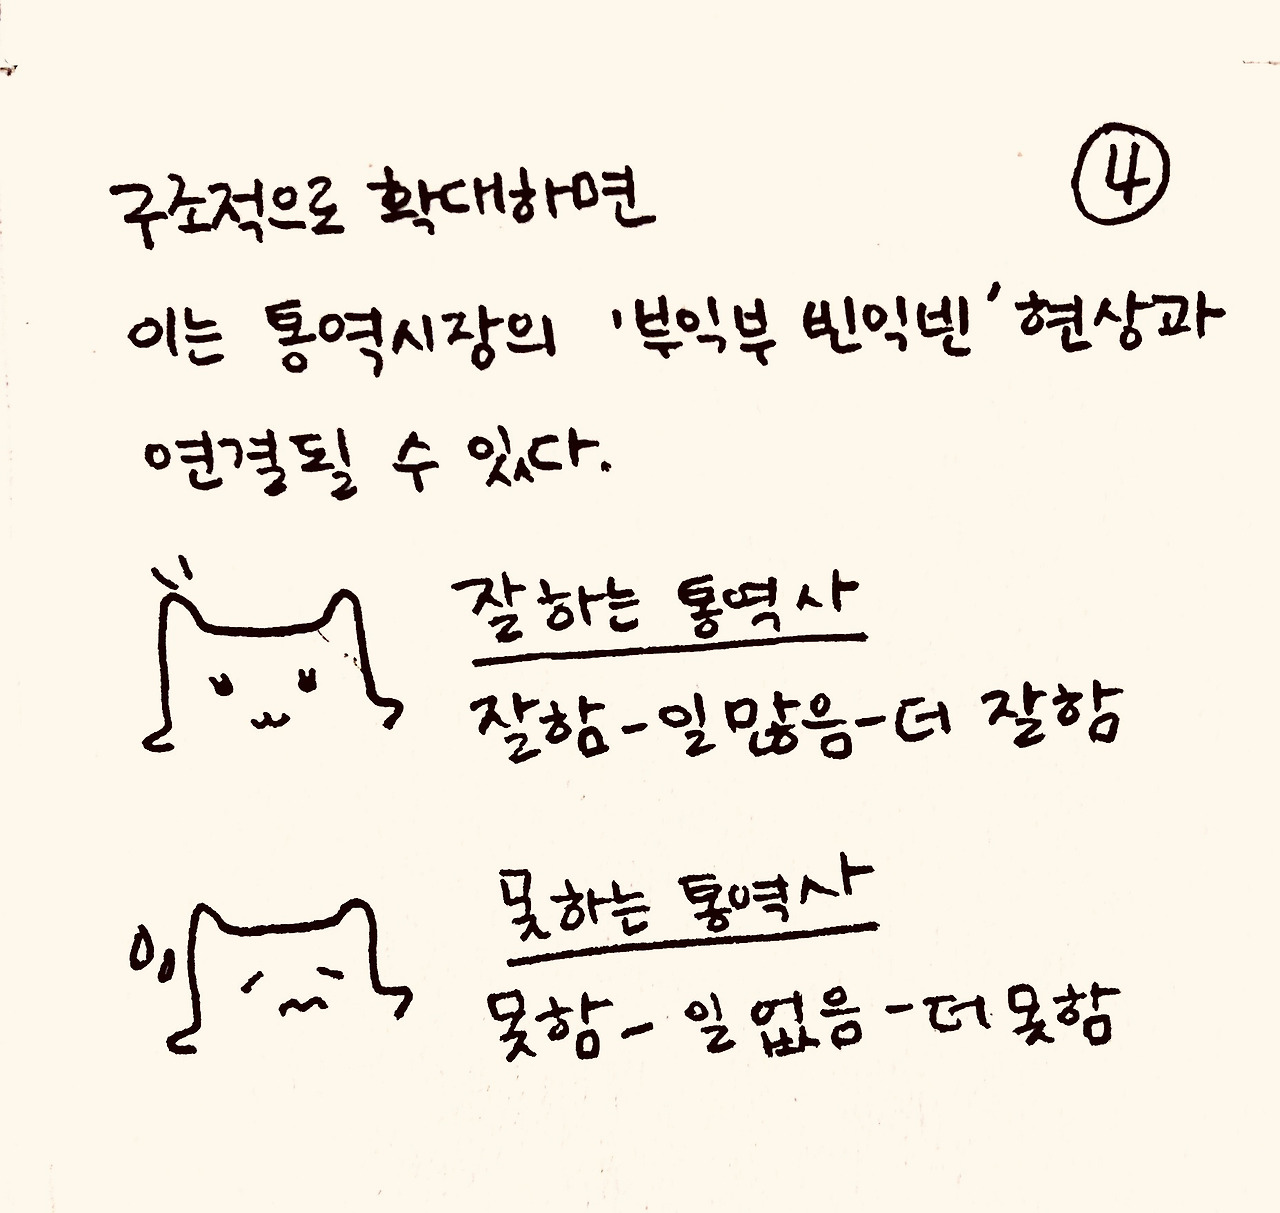 ④
구조적으로 확대하면
이는 통역시장의 '부익부 빈익빈' 현상과
연결될 수 있다.
잘하는 통역사
잘함-일많음-더 잘함
못하는 통역사
못함-일없음-더못함